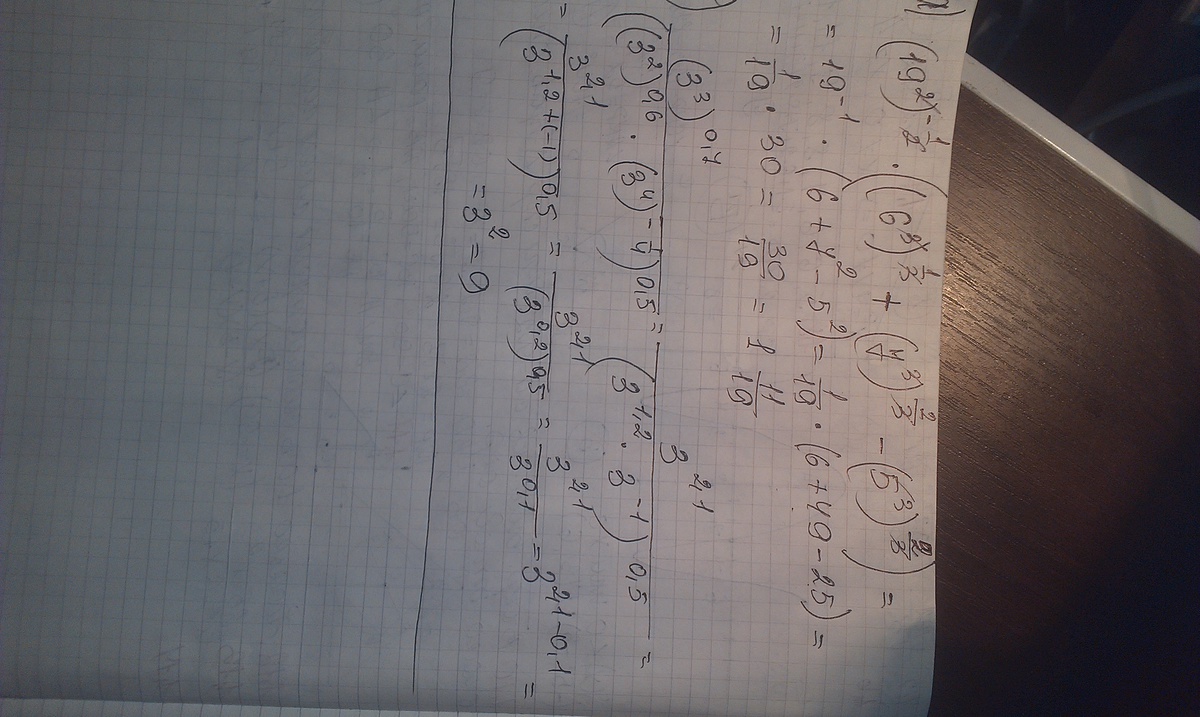 (19²)^{-1/2} · ((6³)^{1/3} + (7³)^{2/3} − (5³)^{2/3}) =
= 19^{-1} · (6 + 7² − 5²) = 1/19 · (6 + 49 − 25) =
= 1/19 · 30 = 30/19 = 1 11/19
(3³)^{0,7} / ((3²)^{0,6} · (3⁴)^{-1/4})^{0,5} = 3^{2,1} / (3^{1,2} · 3^{-1})^{0,5} =
= 3^{2,1} / (3^{1,2+(-1)})^{0,5} = 3^{2,1} / (3^{0,2})^{0,5} = 3^{2,1} / 3^{0,1} = 3^{2,1-0,1} =
= 3² = 9